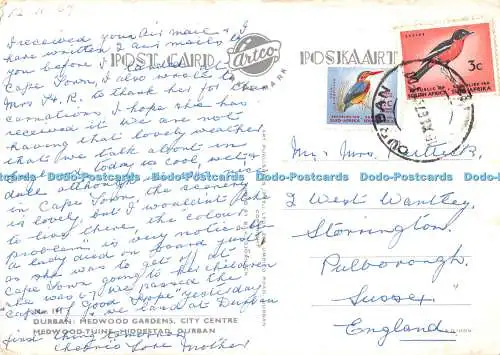 12.11.67
I received your Air mail & I
have written 2 air mails to
you before I landed at
Cape Town, I also wrote to
Mrs H.R. to thank her for the
carnations, I hope she has
received it we are not
having that lovely weather
that we talk about in
today is cool, wet &
dull although it was nice
in Cape Town, the scenery
is lovely, but I wouldn't like
to live there, the "colour
problem" is very noticeable
a lady died on board just
as she was to get off at
Cape Town going to her children
she was 67, we passed the
Cape of Good Hope yesterday
we land at Durban
first thing tomorrow
Cheerio Love Mother
POST CARD
Artco
POSKAART
REPUBLIC OF SOUTH AFRICA
REPUBLIEK VAN SUID-AFRIKA
3c
DURBAN
Mr. Mrs.
2 West Wantley,
Storrington,
Pulborough,
Sussex,
England
DURBAN: MEDWOOD GARDENS, CITY CENTRE
MEDWOOD-TUINE, MIDDESTAD, DURBAN
Docks-Postcards
www.docks-postcards.com